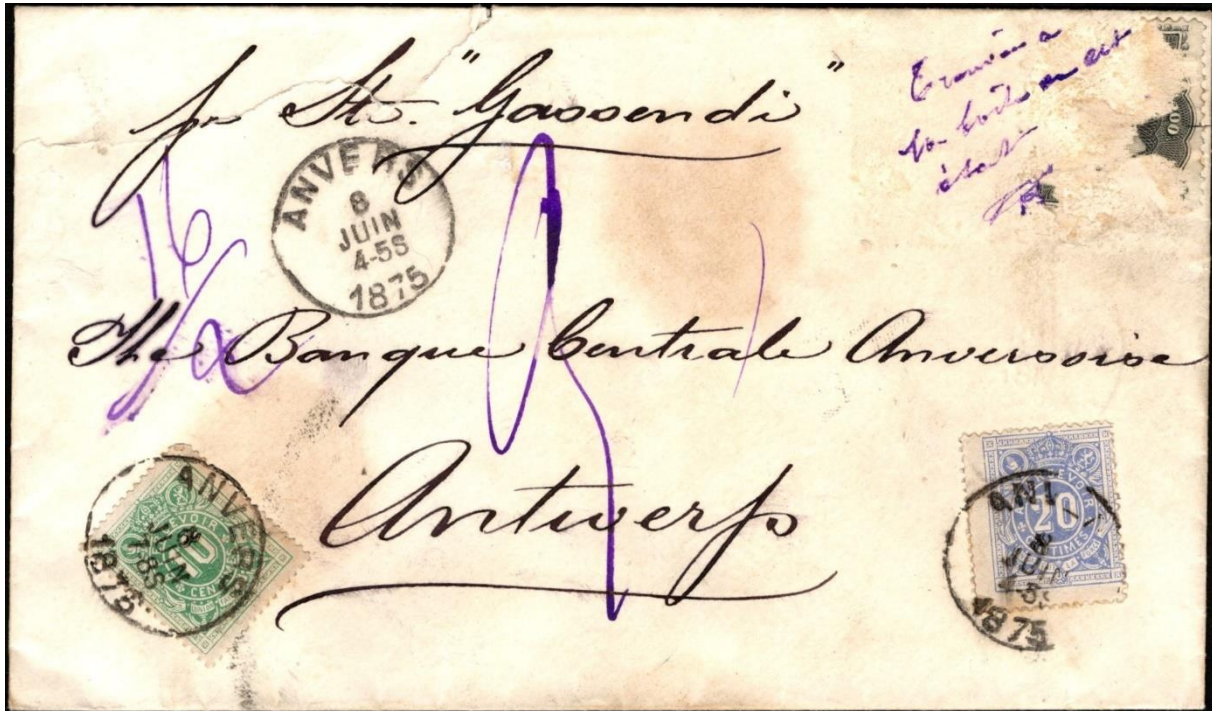 pr Str. "Gassendi"
Trouvée à
la boîte en cet
état
ANVERS
8
JUIN
4-5S
1875
The Banque Centrale Anversoise
Antwerp
ANVERS
8
JUIN
1875
10
CENT
20
CENTIMES
8
JUIN
1875